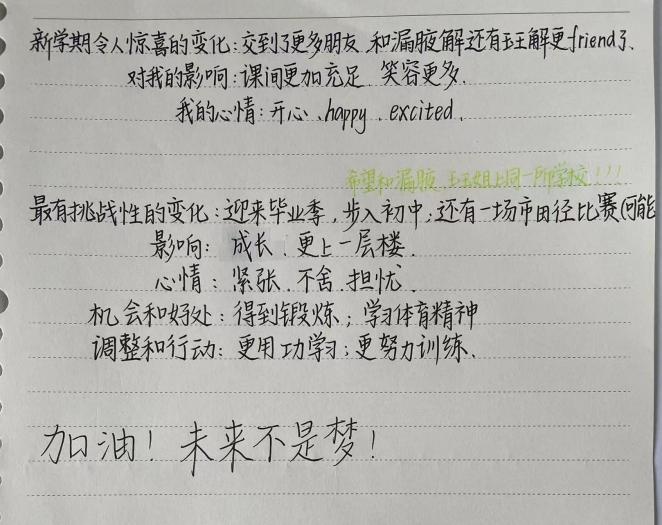 新学期令人惊喜的变化:交到了更多朋友、和漏腋解还有玨解更friend了、
对我的影响:课间更加充足、笑容更多.
我的心情:开心、happy、excited.
希望和漏腋、上同一所学校!!!
最有挑战性的变化:迎来毕业季,步入初中;还有一场市田径比赛(可能
影响: 成长、更上一层楼.
心情: 紧张、不舍、担忧、
机会和好处: 得到锻炼; 学习体育精神
调整和行动: 更用功学习; 更努力训练.
加油! 未来不是梦!